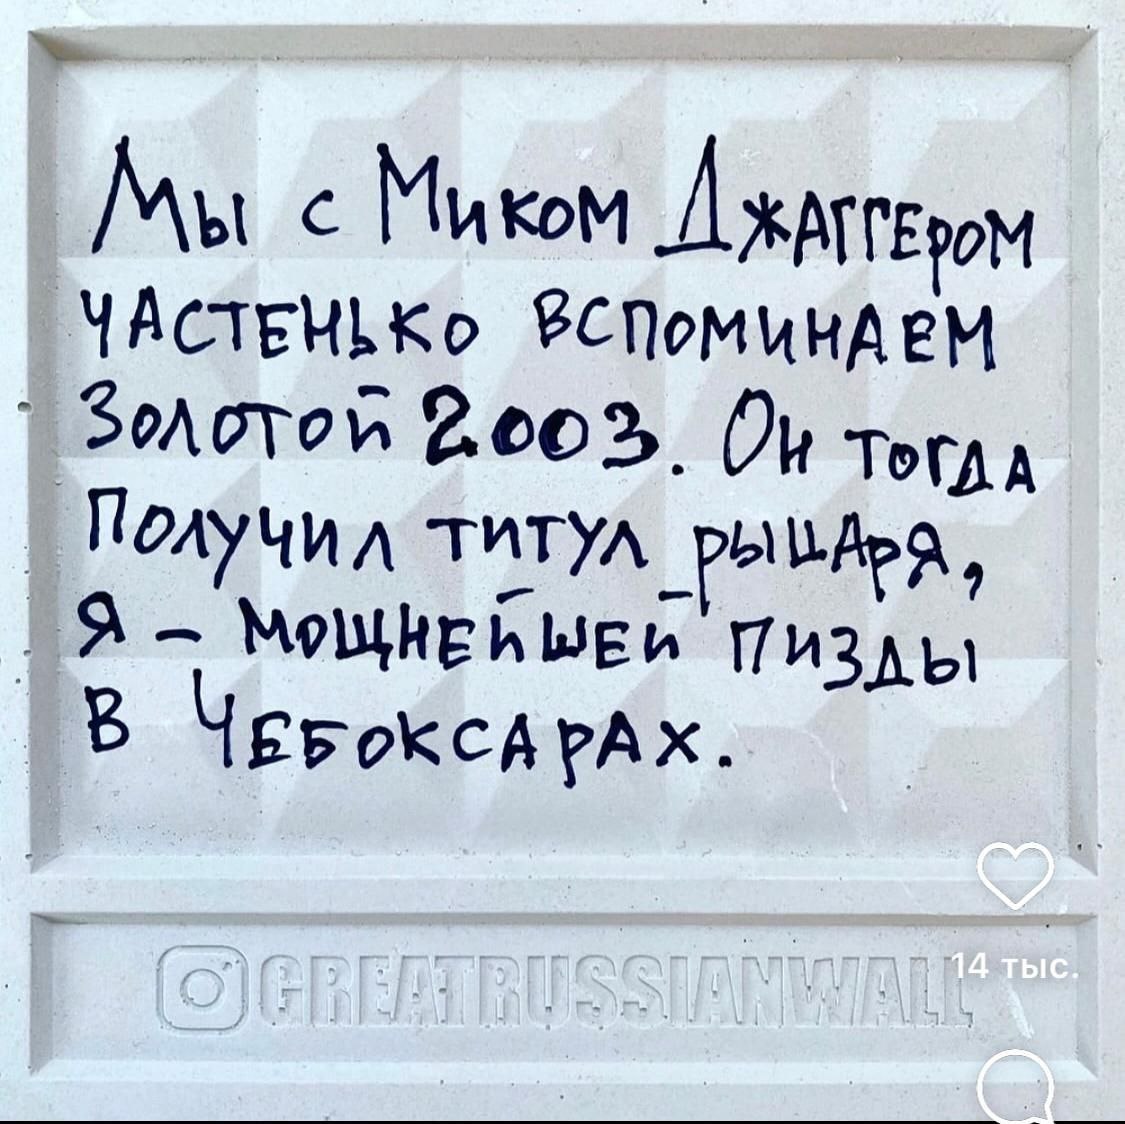 Мы с Миком Джаггером
частенько вспоминаем
Золотой 2003. Он тогда
Получил титул рыцаря,
Я – мощнейшей пизды
в Чебоксарах.
14 тыс.
GREATRUSSIANWALL